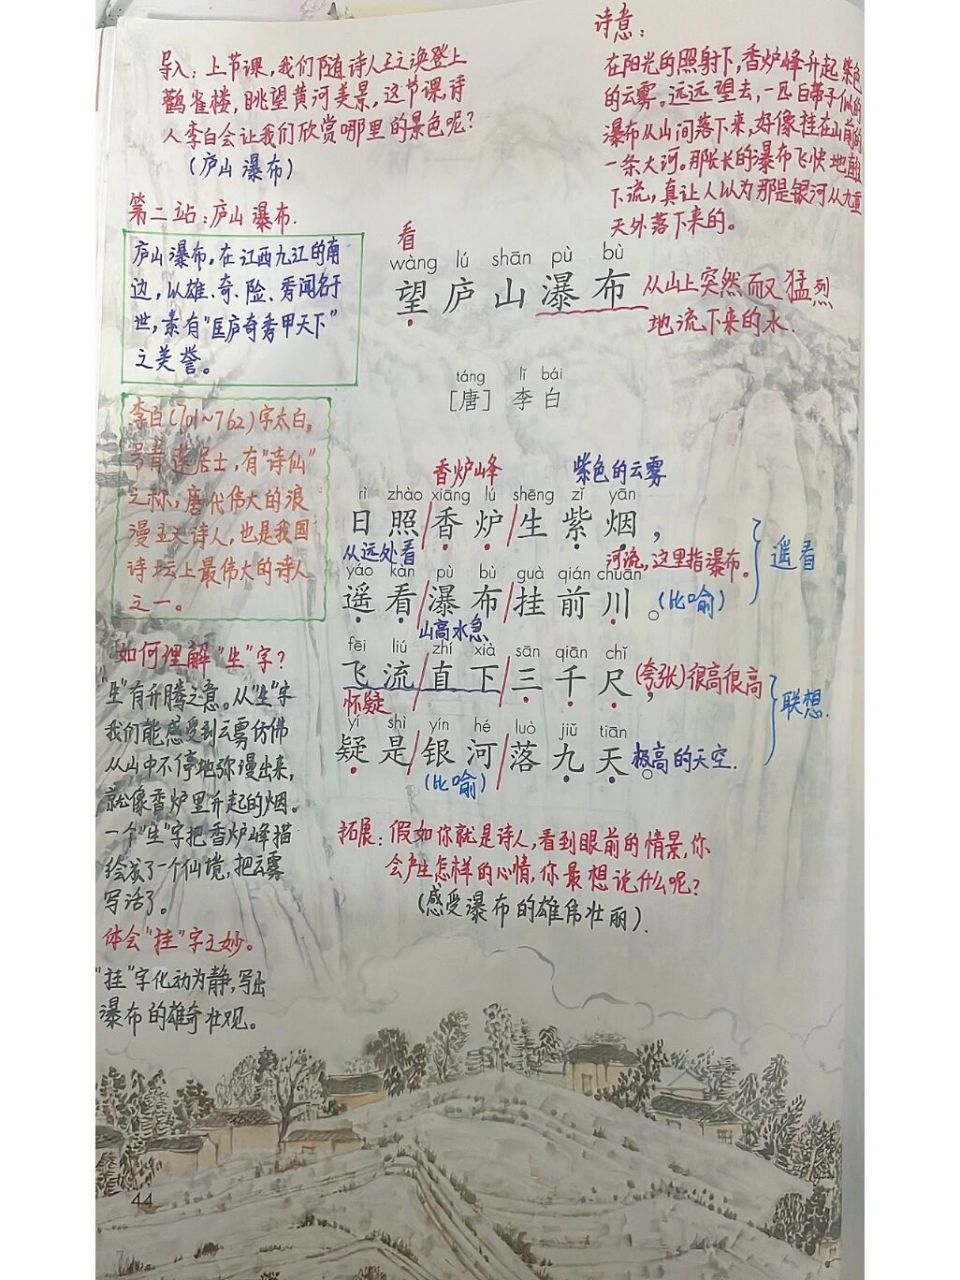 导入：上节课，我们随诗人王之涣登上
鹳雀楼，眺望黄河美景，这节课，诗
人李白会让我们欣赏哪里的景色呢？
（庐山瀑布）
诗意：
在阳光的照射下，香炉峰升起紫色
的云雾。远远望去，一匹白带子似的
瀑布从山间落下来，好像挂在山前的
一条大河。那长长的瀑布飞快地直
下流，真让人以为那是银河从九重
天外落下来的。
第二站：庐山瀑布.
庐山瀑布，在江西九江的南
边，以雄、奇、险、秀闻名于
世，素有“匡庐奇秀甲天下”
之美誉。
看
wàng lú shān pù bù
望庐山瀑布
从山上突然而又猛烈
地流下来的水.
táng lǐ bái
［唐］李白
李白（701～762）字太白，
号青莲居士，有“诗仙”
之称，唐代伟大的浪
漫主义诗人，也是我国
诗坛上最伟大的诗人
之一。
香炉峰 紫色的云雾
rì zhào xiāng lú shēng zǐ yān
日照/香炉/生紫烟，
从远处看 河流，这里指瀑布。
yáo kàn pù bù guà qián chuān
遥看/瀑布/挂前川。（比喻）
遥看
山高水急
fēi liú zhí xià sān qiān chǐ
飞流/直下/三千尺，（夸张）很高很高
怀疑
yí shì yín hé luò jiǔ tiān
疑是/银河/落九天。极高的天空.
（比喻）
联想.
如何理解“生”字？
“生”有升腾之意。从“生”字
我们能感受到云雾仿佛
从山中不停地弥漫出来，
就像香炉里升起的烟。
一个“生”字把香炉峰描
绘成了一个仙境，把云雾
写活了。
体会“挂”字之妙。
“挂”字化动为静，写出
瀑布的雄奇壮观。
拓展：假如你就是诗人，看到眼前的情景，你
会产生怎样的心情，你最想说什么呢？
（感受瀑布的雄伟壮丽）.
44